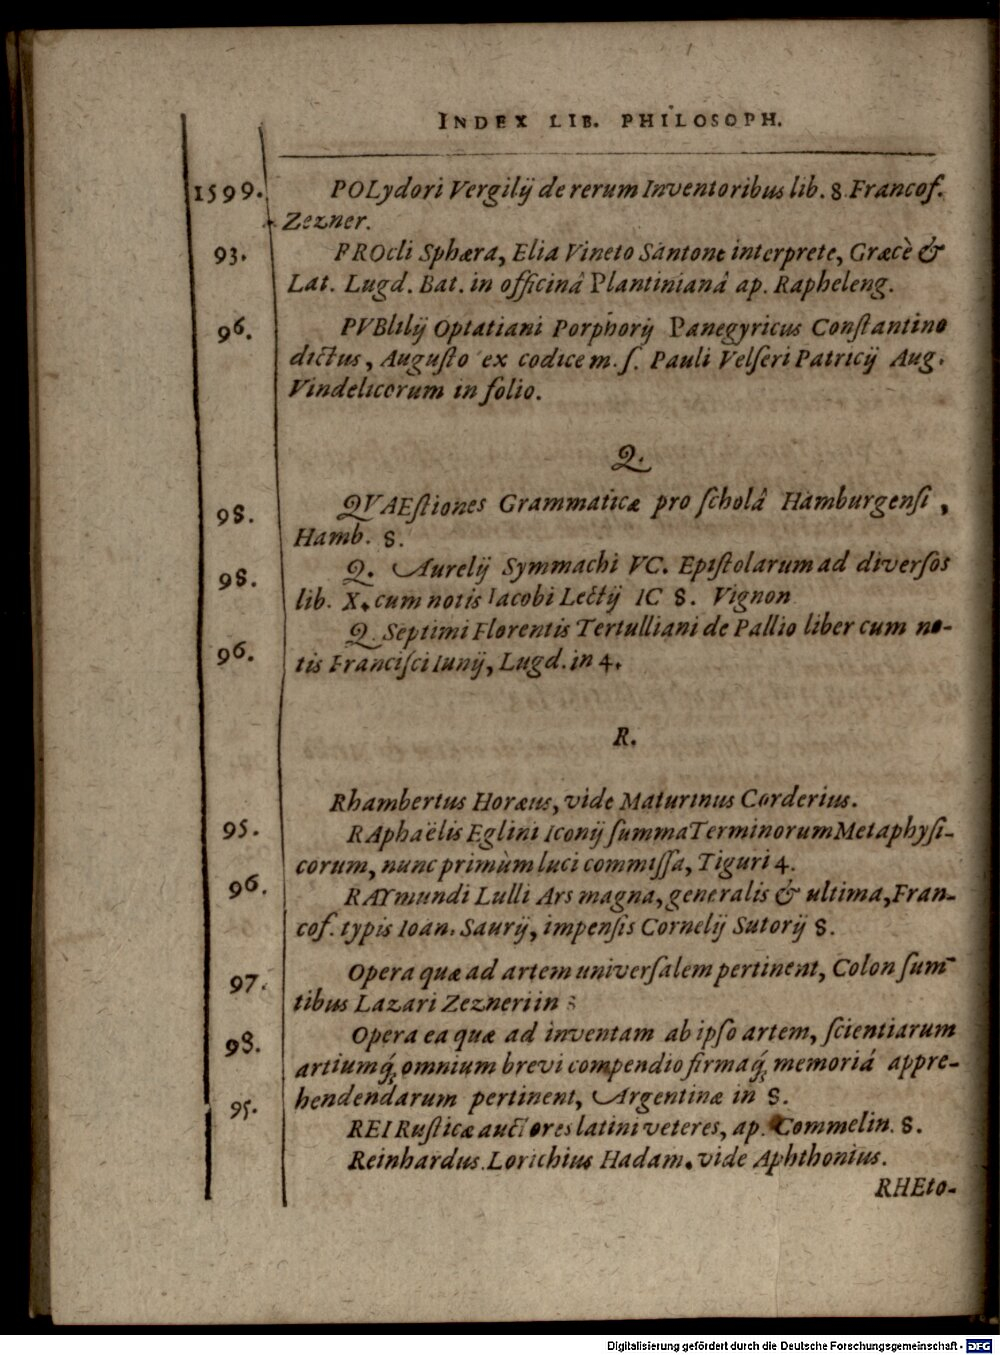 INDEX LIB. PHILOSOPH.
1599. POLydori Vergilij de rerum Inventoribus lib. 8. Francof.
Zezner.
93. PROcli Sphæra, Elia Vineto Santone interprete, Græcè &
Lat. Lugd. Bat. in officinâ Plantinianâ ap. Rapheleng.
96. PVBlilij Optatiani Porphorij Panegyricus Conſtantino
dictus, Auguſto ex codice m. ſ. Pauli Velſeri Patricij Aug.
Vindelicorum in folio.
Q.
98. QVAEſtiones Grammaticæ pro ſcholâ Hamburgenſi,
Hamb. 8.
98. Q. Aurelij Symmachi VC. Epiſtolarum ad diverſos
lib. X. cum notis Iacobi Lectij IC 8. Vignon
96. Q. Septimi Florentis Tertulliani de Pallio liber cum no-
tis Franciſci Iunij, Lugd. in 4.
R.
Rhambertus Horæus, vide Maturinus Corderius.
95. RAphaëlis Eglini Iconij ſumma Terminorum Metaphyſi-
corum, nunc primùm luci commiſſa, Tiguri 4.
96. RAYmundi Lulli Ars magna, generalis & ultima, Fran-
cof. typis Ioan. Saurij, impenſis Cornelij Sutorij 8.
97. Opera quæ ad artem univerſalem pertinent, Colon ſum-
tibus Lazari Zezneri in 8
98. Opera ea quæ ad inventam ab ipſo artem, ſcientiarum
artiumq́; omnium brevi compendio firmaq́; memoriá appre-
hendendarum pertinent, Argentinæ in 8.
95. REI Ruſticæ auctores latini veteres, ap. Commelin. 8.
Reinhardus Lorichius Hadam. vide Aphthonius.
RHEto-
Digitalisierung gefördert durch die Deutsche Forschungsgemeinschaft - DFG